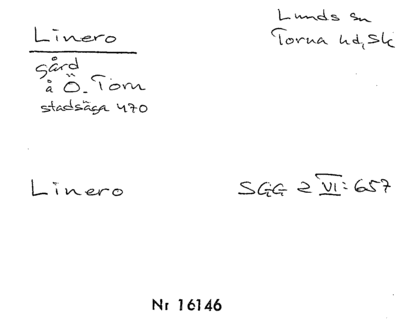 Linero
Lunds sn
Torna hd, Sk
gård
å Ö. Torn
stadsäga 470
Linero
SGG 2 VI: 657
Nr 16146